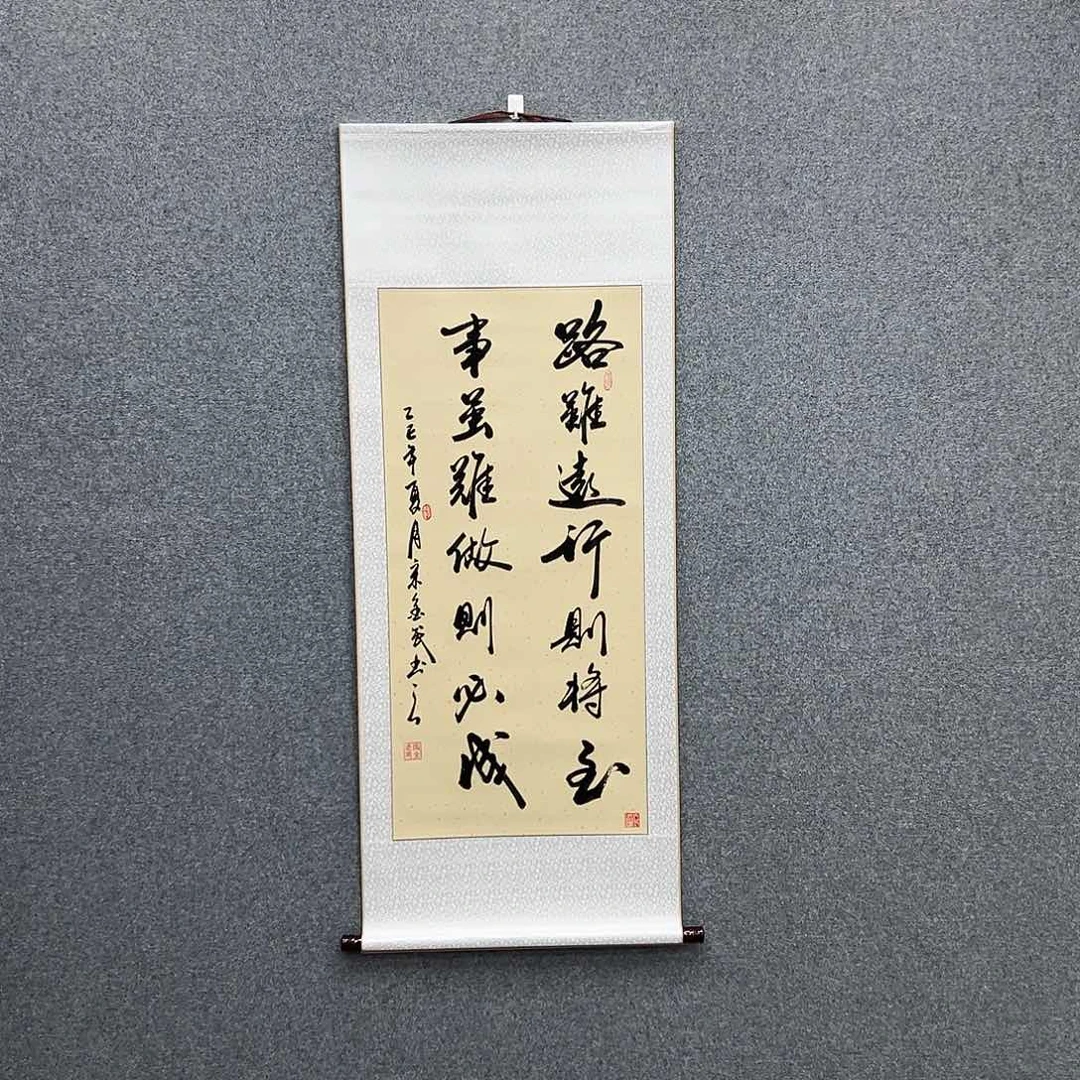 路雖遠行則将至
事虽難做則必成
乙巳年夏月